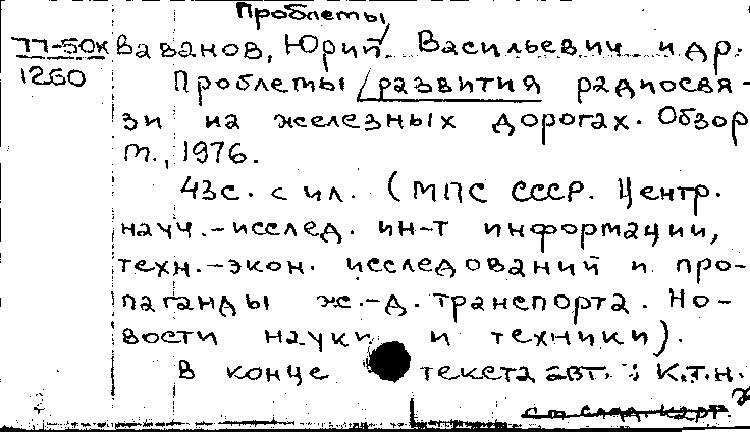 Проблемы
77-50к Ваванов, Юрий Васильевич и др.
1260 Проблемы / развития радиосвя-
зи на железных дорогах. Обзор
М., 1976.
43с. с ил. (МПС СССР. Центр.
науч.-исслед. ин-т информации,
техн.-экон. исследований и про-
паганды ж.-д. транспорта. Но-
вости науки и техники).
В конце текста авт.: к.т.н.
см след. карт.